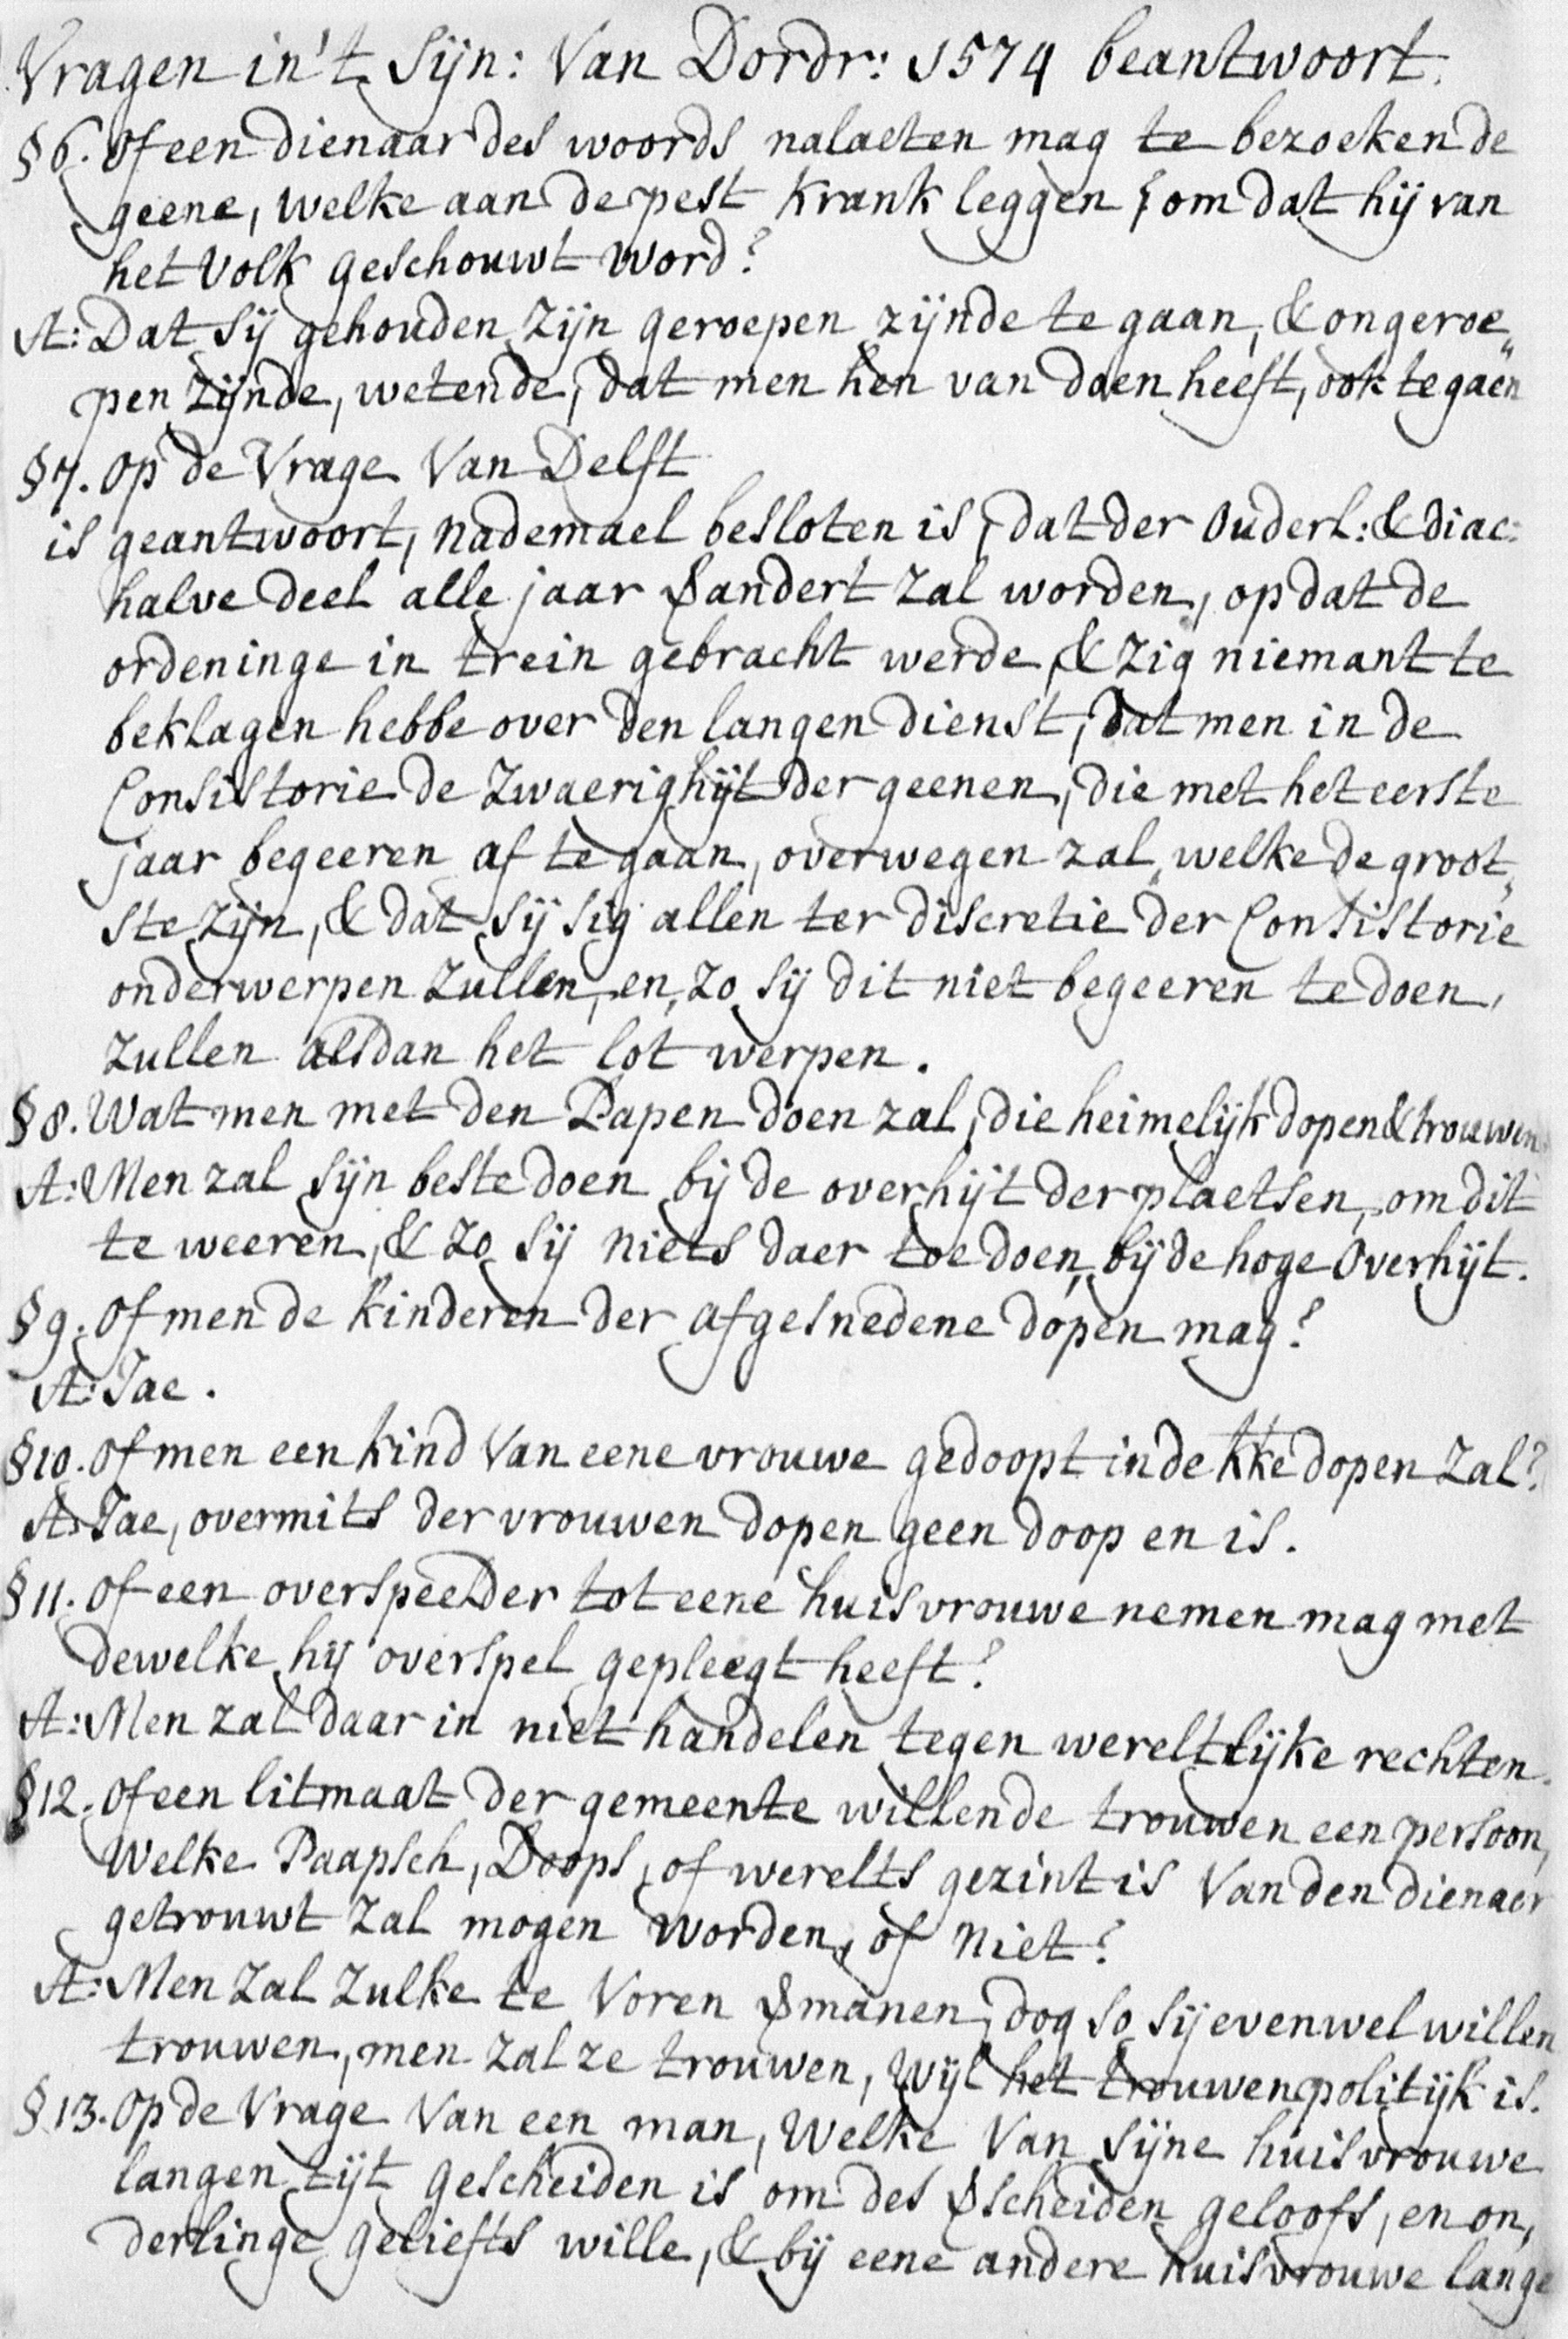 Vragen in't Sijn: Van Dordr: 1574 beantwoort.
§6. Of een dienaar des woords nalaeten mag te bezoeken de
geene, welke aan de pest krank leggen, om dat hij van
het Volk geschouwt word?
A: Dat sij gehouden zijn geroepen zijnde te gaan, & ongeroe„
pen zijnde, wetende, dat men hen van doen heeft, ook te gaen
§7. Op de Vrage Van Delft
is geantwoort, nademael besloten is, dat der Ouderl: & diac:
halve deel alle jaar §andert zal worden, op dat de
ordeninge in trein gebracht werde, & zig niemant te
beklagen hebbe over den langen dienst, dat men in de
Consistorie de zwaerighijt der geenen, die met het eerste
jaar begeeren af te gaan, overwegen zal, welke de groot„
ste zijn, & dat sij sig allen ter discretie der Consistorie
onderwerpen zullen, en, zo sij dit niet begeeren te doen,
zullen alsdan het lot werpen.
§8. Wat men met den Papen doen zal, die heimelijk dopen & trouwen
A: Men zal sijn beste doen bij de overhijt der plaetsen, om dit
te weeren, & zo sij niets daer toe doen, bij de hoge Overhijt.
§9. Of men de kinderen der afgesnedene dopen mag?
A: Jae.
§10. Of men een kind Van eene vrouwe gedoopt in de kke dopen zal?
A: Jae, overmits der vrouwen dopen geen doop en is.
§11. Of een overspeelder tot eene huisvrouwe nemen mag met
dewelke hij overspel gepleegt heeft?
A: Men zal daar in niet handelen tegen wereltlijke rechten.
§12. Of een litmaat der gemeente willende trouwen een persoon,
welke Paapsch, Doops, of werelts gezint is Van den dienaer
getrouwt zal mogen worden, of niet?
A: Men zal zulke te Voren §manen, dog so sij evenwel willen
trouwen, men zal ze trouwen, wijl het trouwen politijk is.
§13. Op de Vrage Van een man, welke Van sijne huisvrouwe
langen tijt gescheiden is om des §scheiden geloofs, en on,
derlinge geliefts wille, & bij eene andere huisvrouwe lange